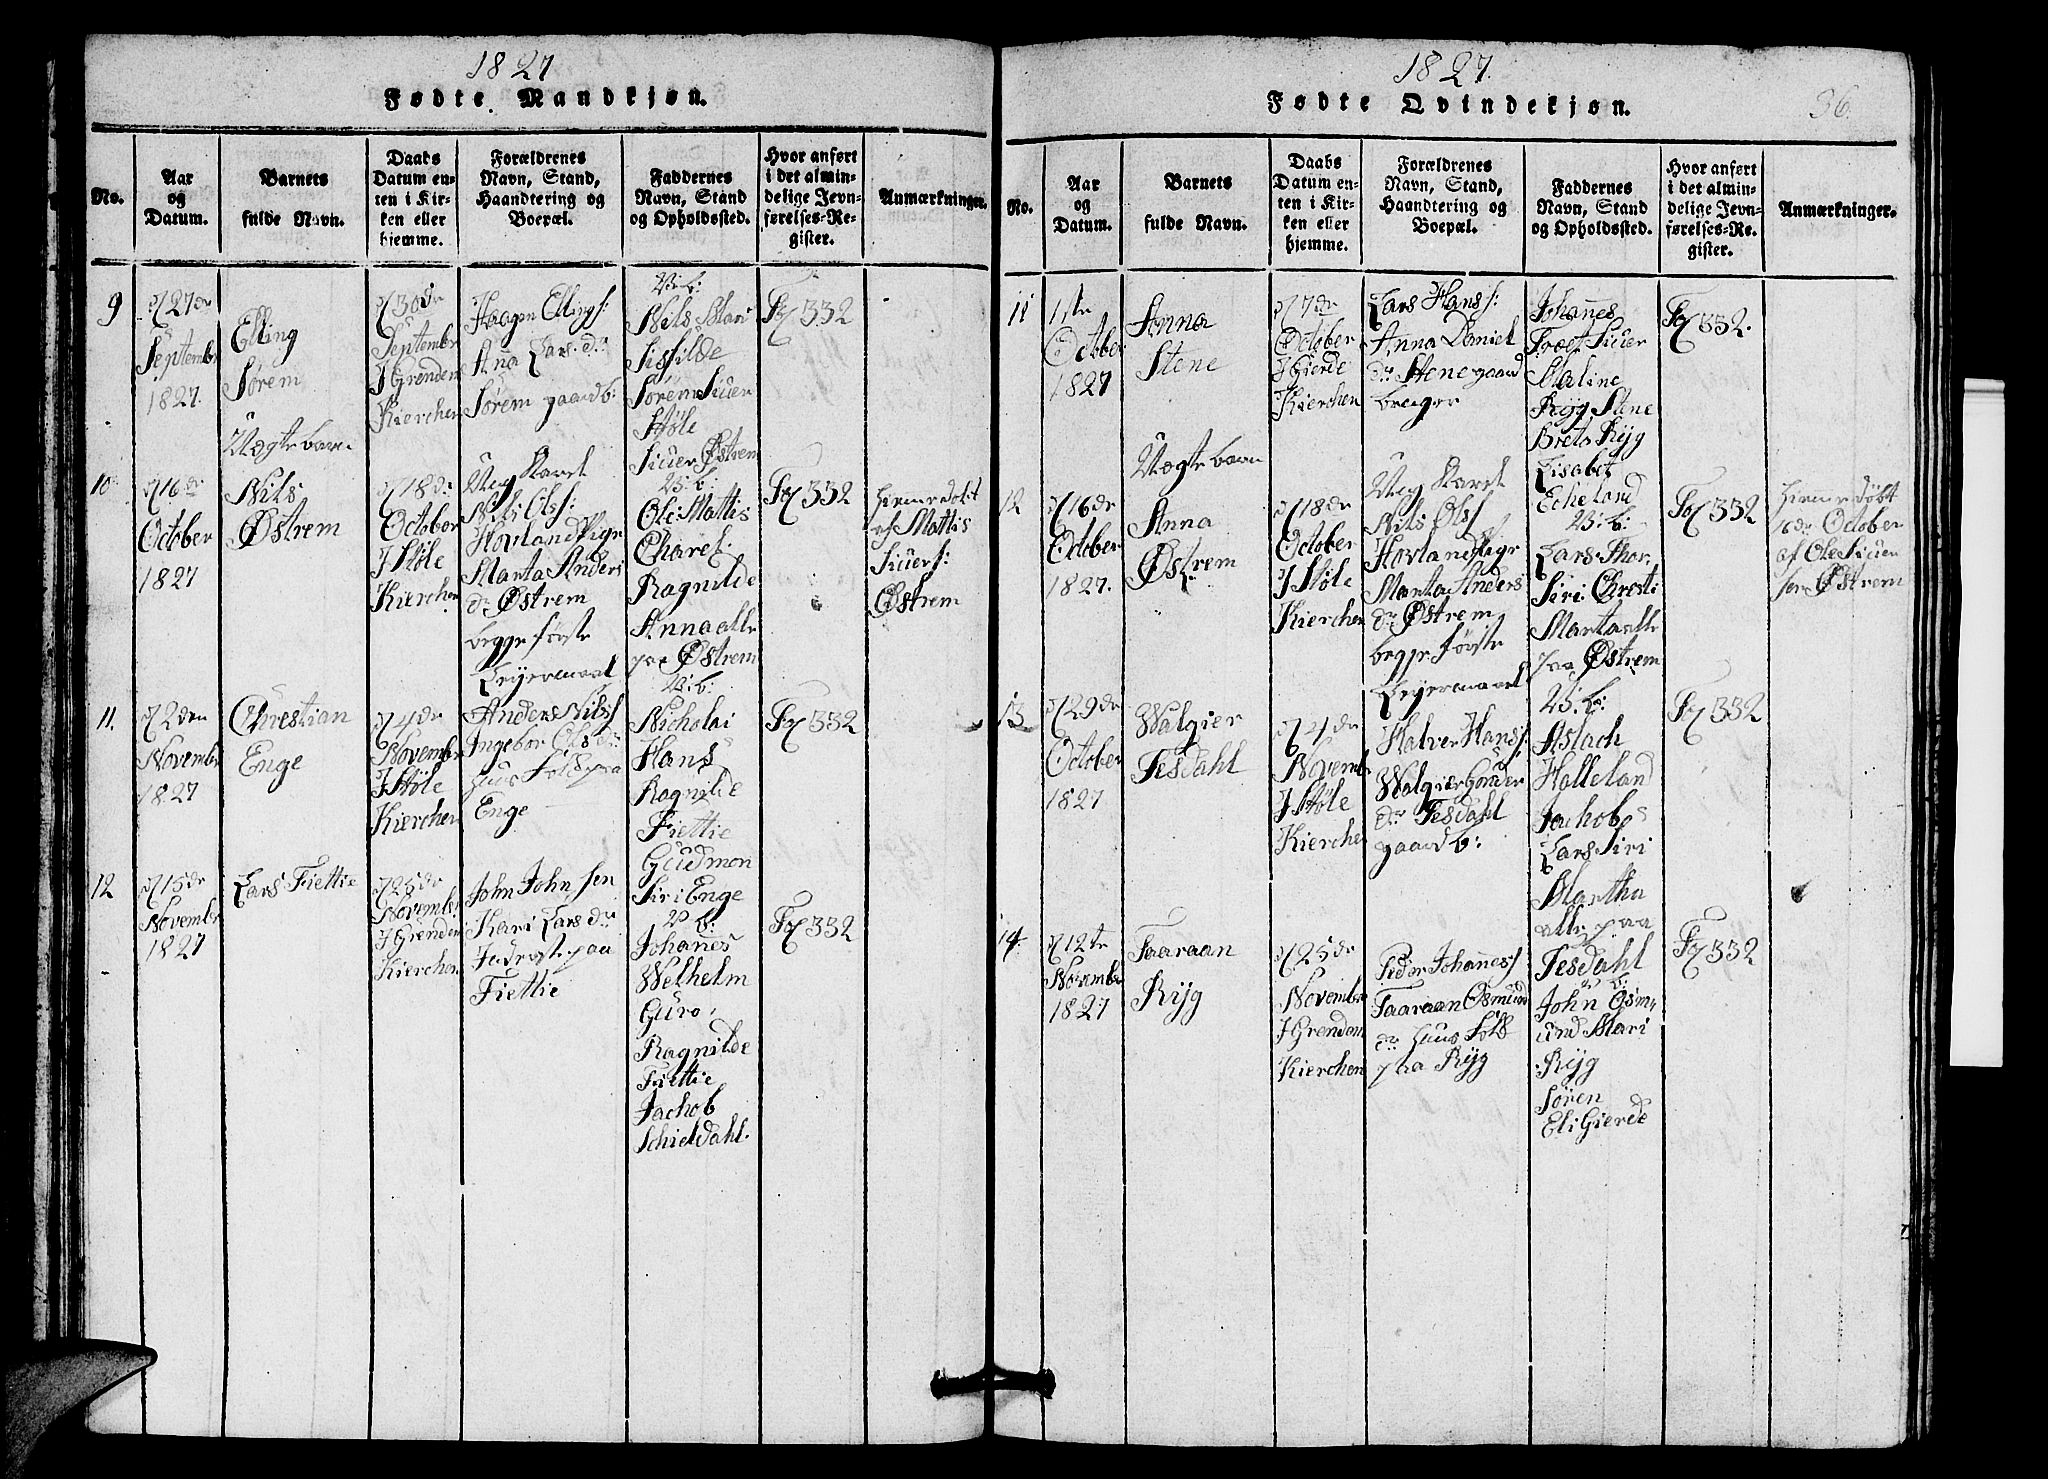 1827
Fødte Mandkjøn.
No.
Aar
og
Datum.
Barnets
fulde Navn.
Daabs
Datum en-
ten i Kir-
ken eller
hjemme.
Forældrenes
Navn, Stand,
Haandtering og
Boepæl.
Faddernes
Navn, Stand
og Opholdssted.
Hvor anført
i det almin-
delige Jevn-
førelses-Re-
gister.
Anmærkninger.
9
27de
Septembr
1827.
Elling
Sørem
30de
Septembr
I Grenden
Kierchen
Haagen Ellings:
Anna Lars dr
Sørem gaardb:
V: b:
Nils Mari
Sisfilde
Sørem Siuer
Støle
Siuer Østrem
332
10
16de
October
1827
Uægte barn
Nils
Østrem
18de
October
I Støle
Kierchen
Ung Karel
Nils Olss:
Hovland Pigr
Marta Anders
dr Østrem
begge første
Leyermaal
V: b:
Ole Mattis
Charel.
Ragnilde
Anna alle
paa Østrem
332
hiemedøbt
af Mattis
Siuers:
Østrem
11.
2den
Novembr
1827
Chrestian
Enge
4de
Novembr
I Støle
Kierchen
Anders Nilss
Ingebor Ols dr
huus Folk paa
Enge
V: b:
Nicholai
Hans
Ragnilde
Fiettie
Gudmon
Siri Enge
332
12
15de
Novembr
1827
Lars Fiettie
25de
Novembr
I Grenden
Kierchen
John Johnsen
Kari Lars dr
Inderst paa
Fiettie
V b:
Johanes
Welhelm
Guro,
Ragnilde
Fiettie
Jachob
Schieldahl.
332
1827.
Fødte Qvindekjøn.
36
No.
Aar
og
Datum.
Barnets
fulde Navn.
Daabs
Datum en-
ten i Kir-
ken eller
hjemme.
Forældrenes
Navn, Stand,
Haandtering og
Boepæl.
Faddernes
Navn, Stand
og Opholdssted.
Hvor anført
i det almin-
delige Jevn-
førelses-Re-
gister.
Anmærkninger.
11
1ste
October
1827
Anna
Stene
7de
October
I Gierde
Kierchen
Lars Hanss:
Anna Daniel
dr Stene gaard
bruger
Johanes
Træet Siuer
Maline
Ryg Stene
Breta Ryg
Lisabet
Echeland
332.
12
16de
October
1827.
Uægte barn
Anna
Østrem
18de
October
I Støle
Kierchen
Ung Karel
Nils Olss
Hovland Pigr
Marta Anders
dr Østrem
begge første
Leyermaal
V: b:
Lars Thor.
Siri Chresti
Marta alle
paa Østrem
332
hiemedøbt
16de October
af Ole Siuer
sen Østrem
13
29de
October
1827
Walgier
Tesdahl
4de
Novembr
I Støle
Kierchen
Halver Hanss:
Walgier Gunder
dr Tesdahl
gaardb:
V: b:
Aslach
Halleland
Jachob
Lars Siri
Martha
alle paa
Tesdahl
332
14
12te
Novembr
1827
Taaraan
Ryg
25de
Novembr
I Grenden
Kierchen
Peder Johaness
Taaraan Osmund
dr huus Folk
paa Ryg
V b:
John Osm
und Mari
Ryg
Søren
Eli Gierde
332